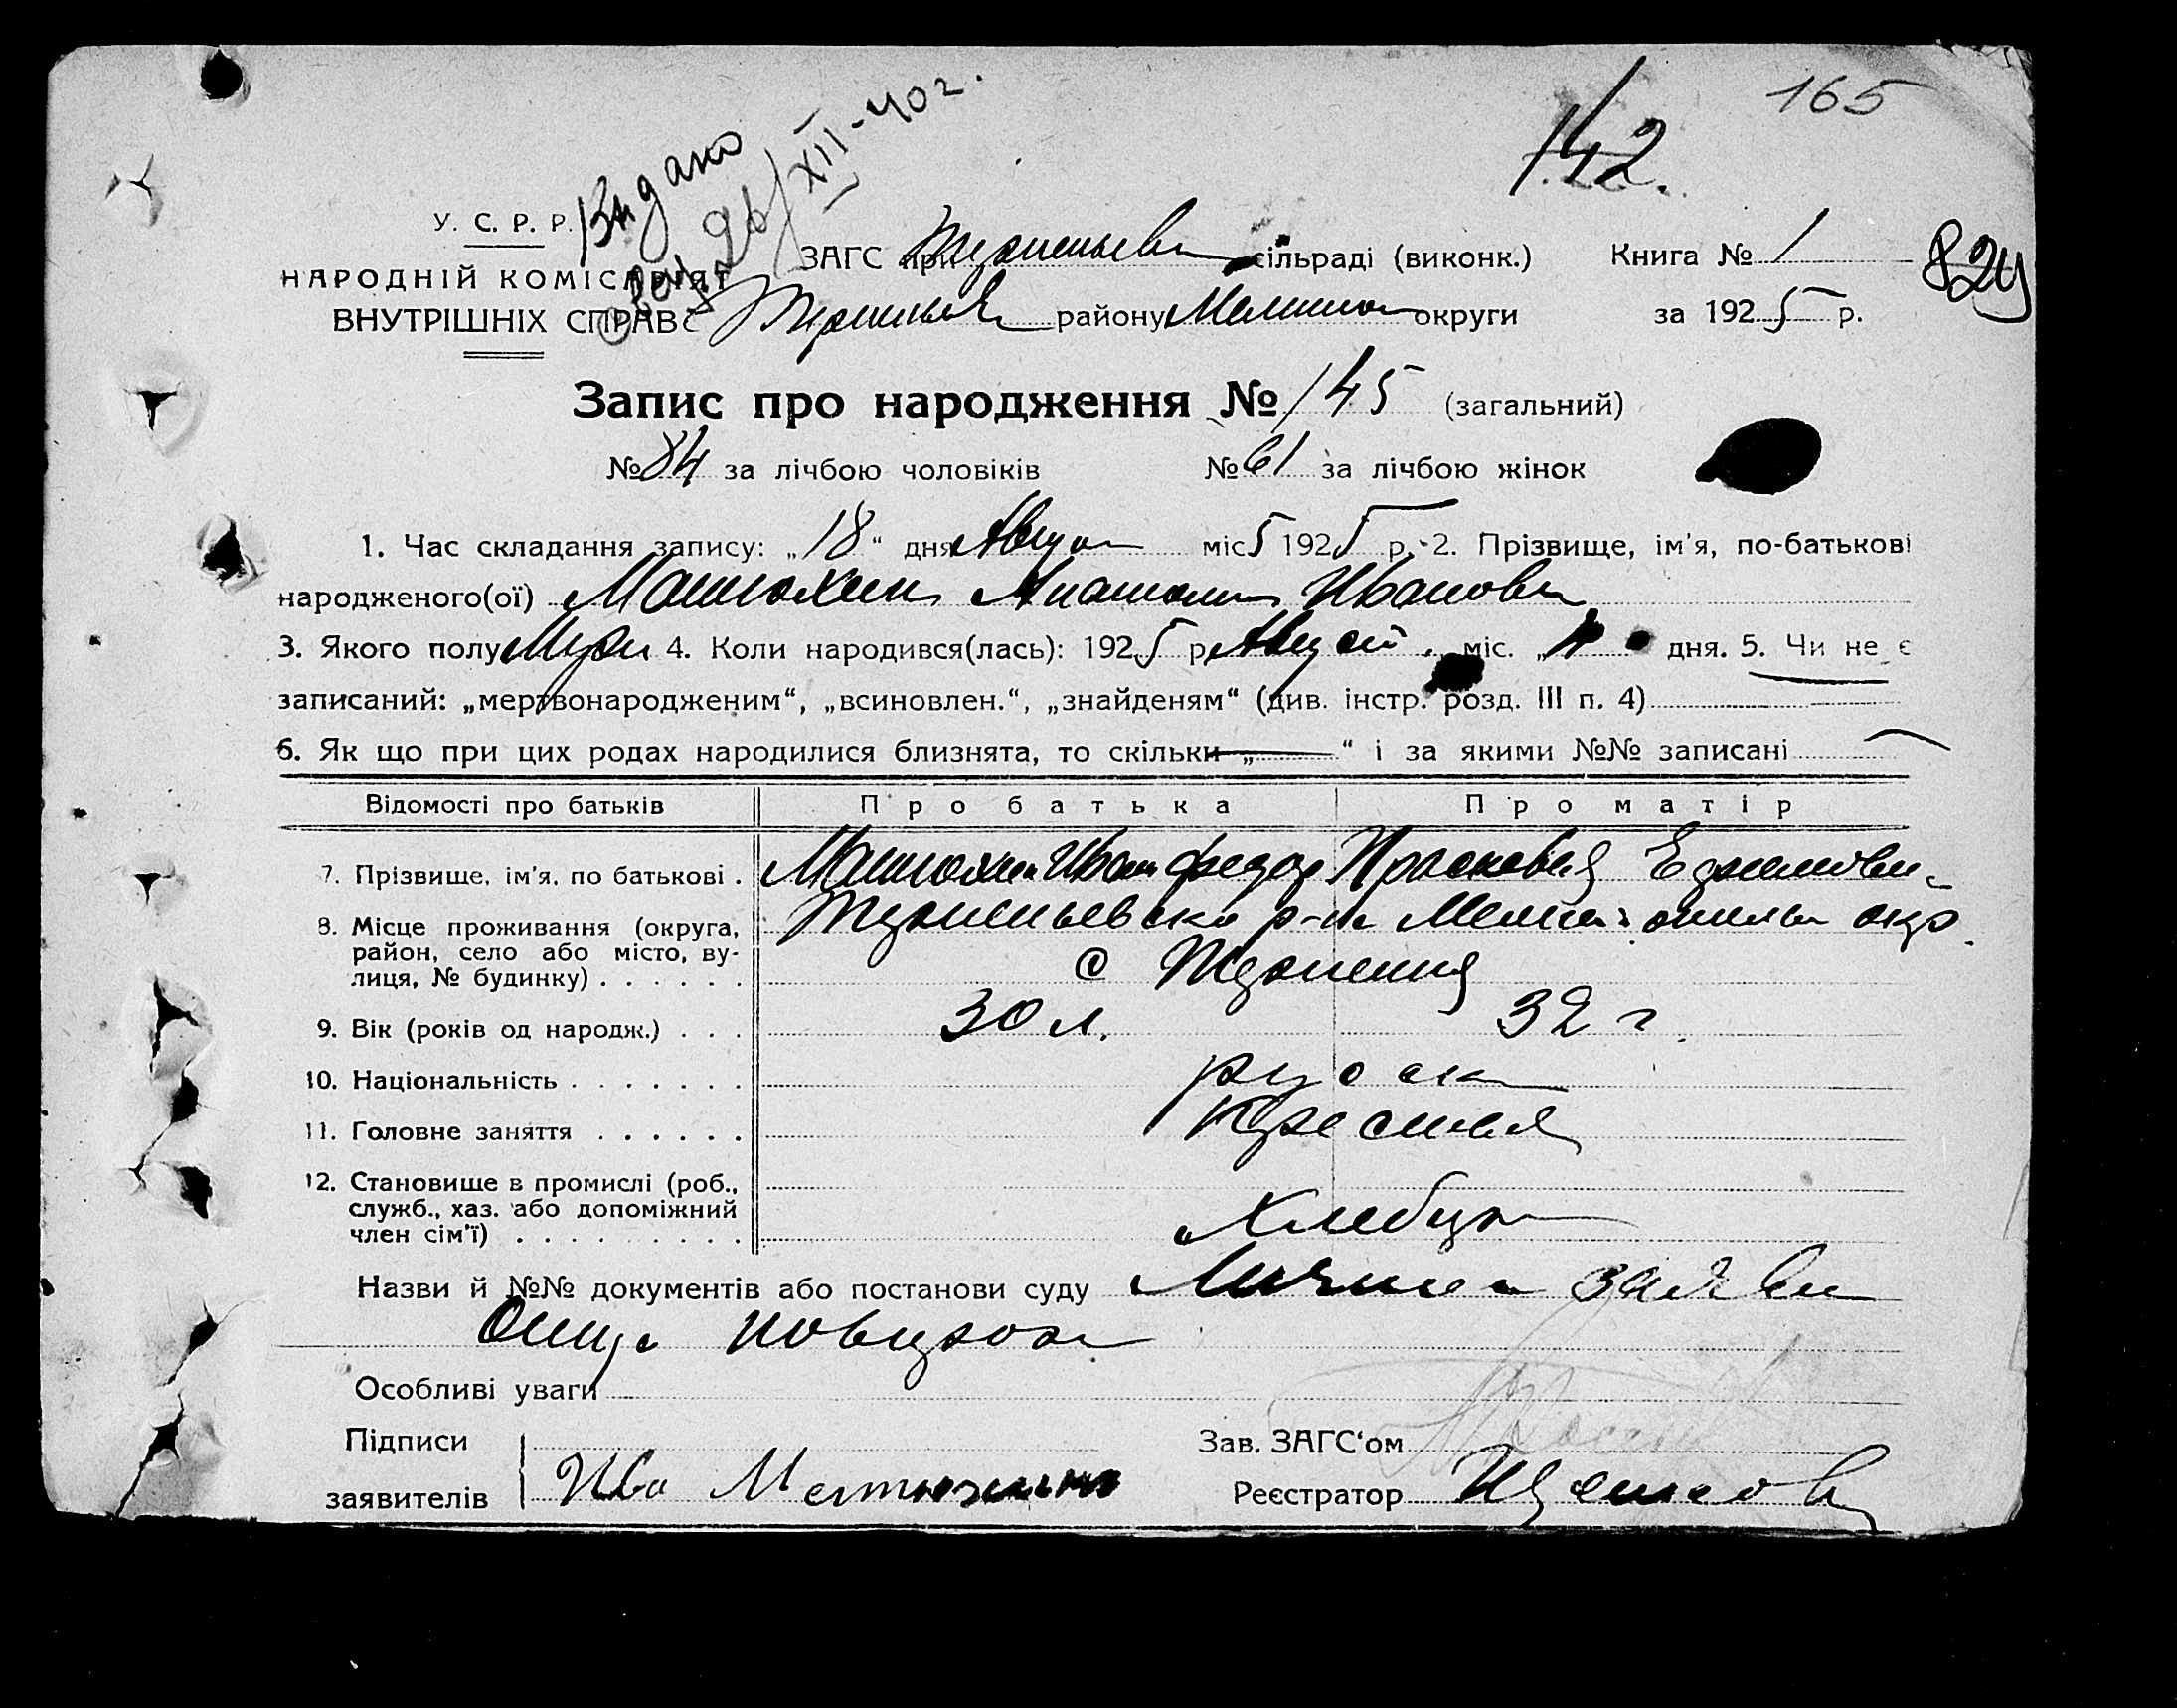 165
142.
Видано
26/XII-40г.
У. С. Р. Р.
НАРОДНІЙ КОМІСАРІЯТ
ВНУТРІШНІХ СПРАВ
ЗАГС при сільраді (виконк.) Книга № 1
району округи за 1925 р.
824
Запис про народження № 145 (загальний)
№ 84 за лічбою чоловіків № 61 за лічбою жінок
1. Час складання запису: „18“ дня Август міс 5 1925 р. 2. Прізвище, ім'я, по-батькові
народженого(ої) Матюхин Анатолий Иванови
3. Якого полу Муж 4. Коли народився(лась): 1925 р. Август міс. „ дня. 5. Чи не є
записаний: „мертвонародженим“, „всиновлен.“, „знайденям“ (див. інстр. розд. III п. 4)
6. Як що при цих родах народилися близнята, то скільки „ “ і за якими №№ записані
Відомості про батьків Про батька Про матір
7. Прізвище, ім'я, по батькові . Матюхин Иван Федор Прасковия Ефимовн
8. Місце проживання (округа, район, село або місто, вулиця, № будинку) . . . . . . р-на окр.
с Терпения
9. Вік (років од народж.) . . . 30 л. 32 г.
10. Національність . . . . . . . русск
11. Головне заняття . . . . . . Крестья
12. Становище в промислі (роб., служб., хаз. або допоміжний член сім'ї) . . . . . . . . . Хлебур
Назви й №№ документів або постанови суду Личное заяви
Отца
Особливі уваги
Підписи Зав. ЗАГС‘ом
заявителів Ива Матюхин Реєстратор